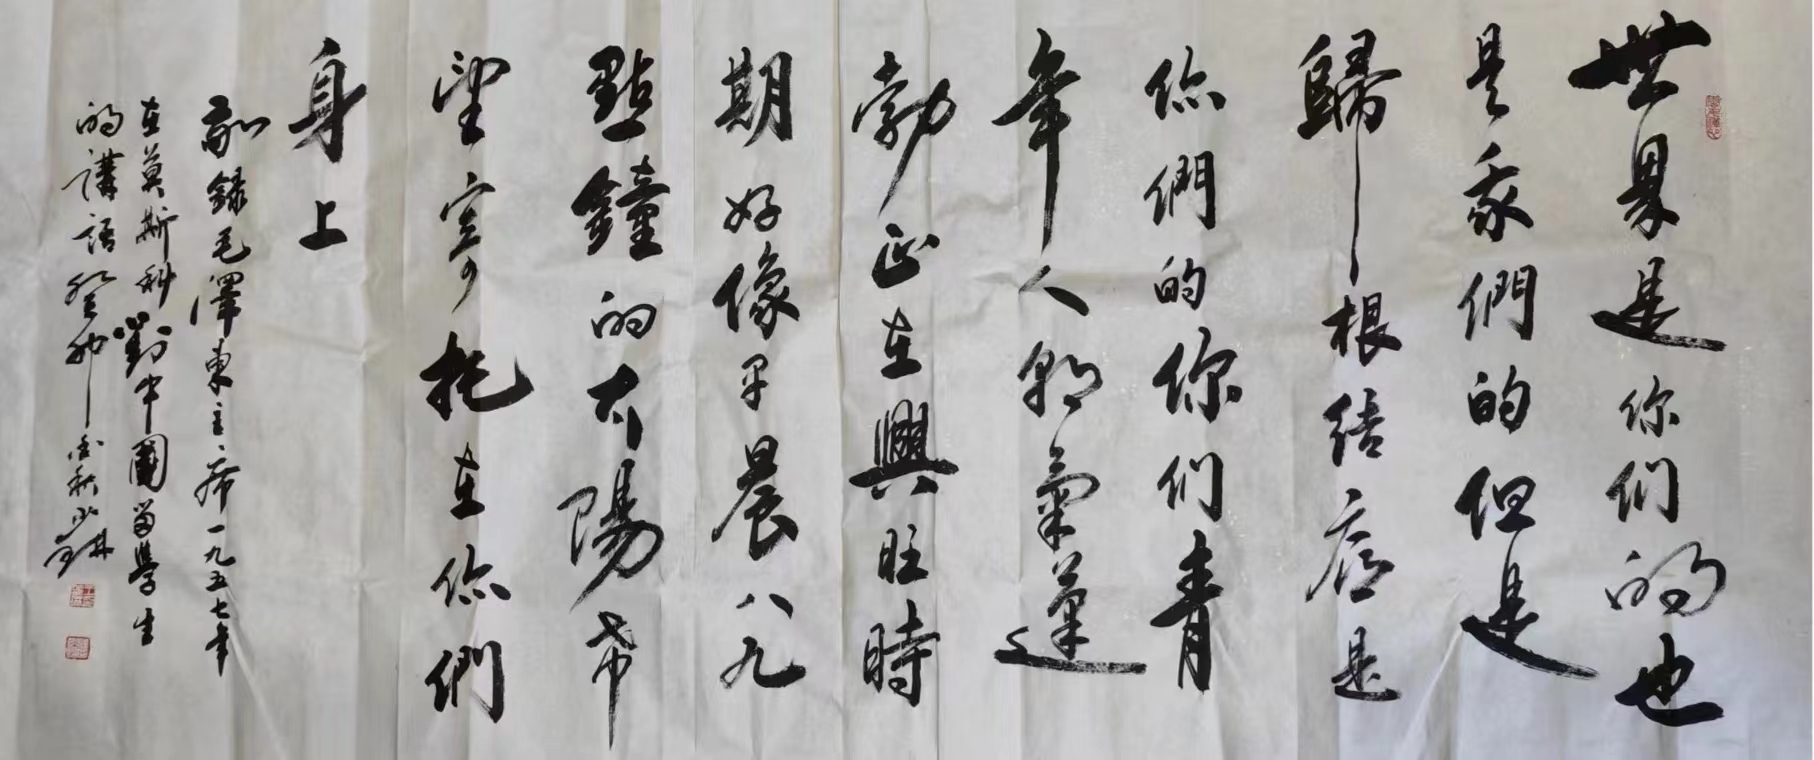 世界是你们的也
是我們的但是
歸根结底是
你們的你们青
年人朝氣蓬
勃正在興旺時
期好像早晨八九
點鐘的太陽希
望寄托在你們
身上
敬錄毛澤東主席一九五七年
在莫斯科對中國留學生
的講話癸卯